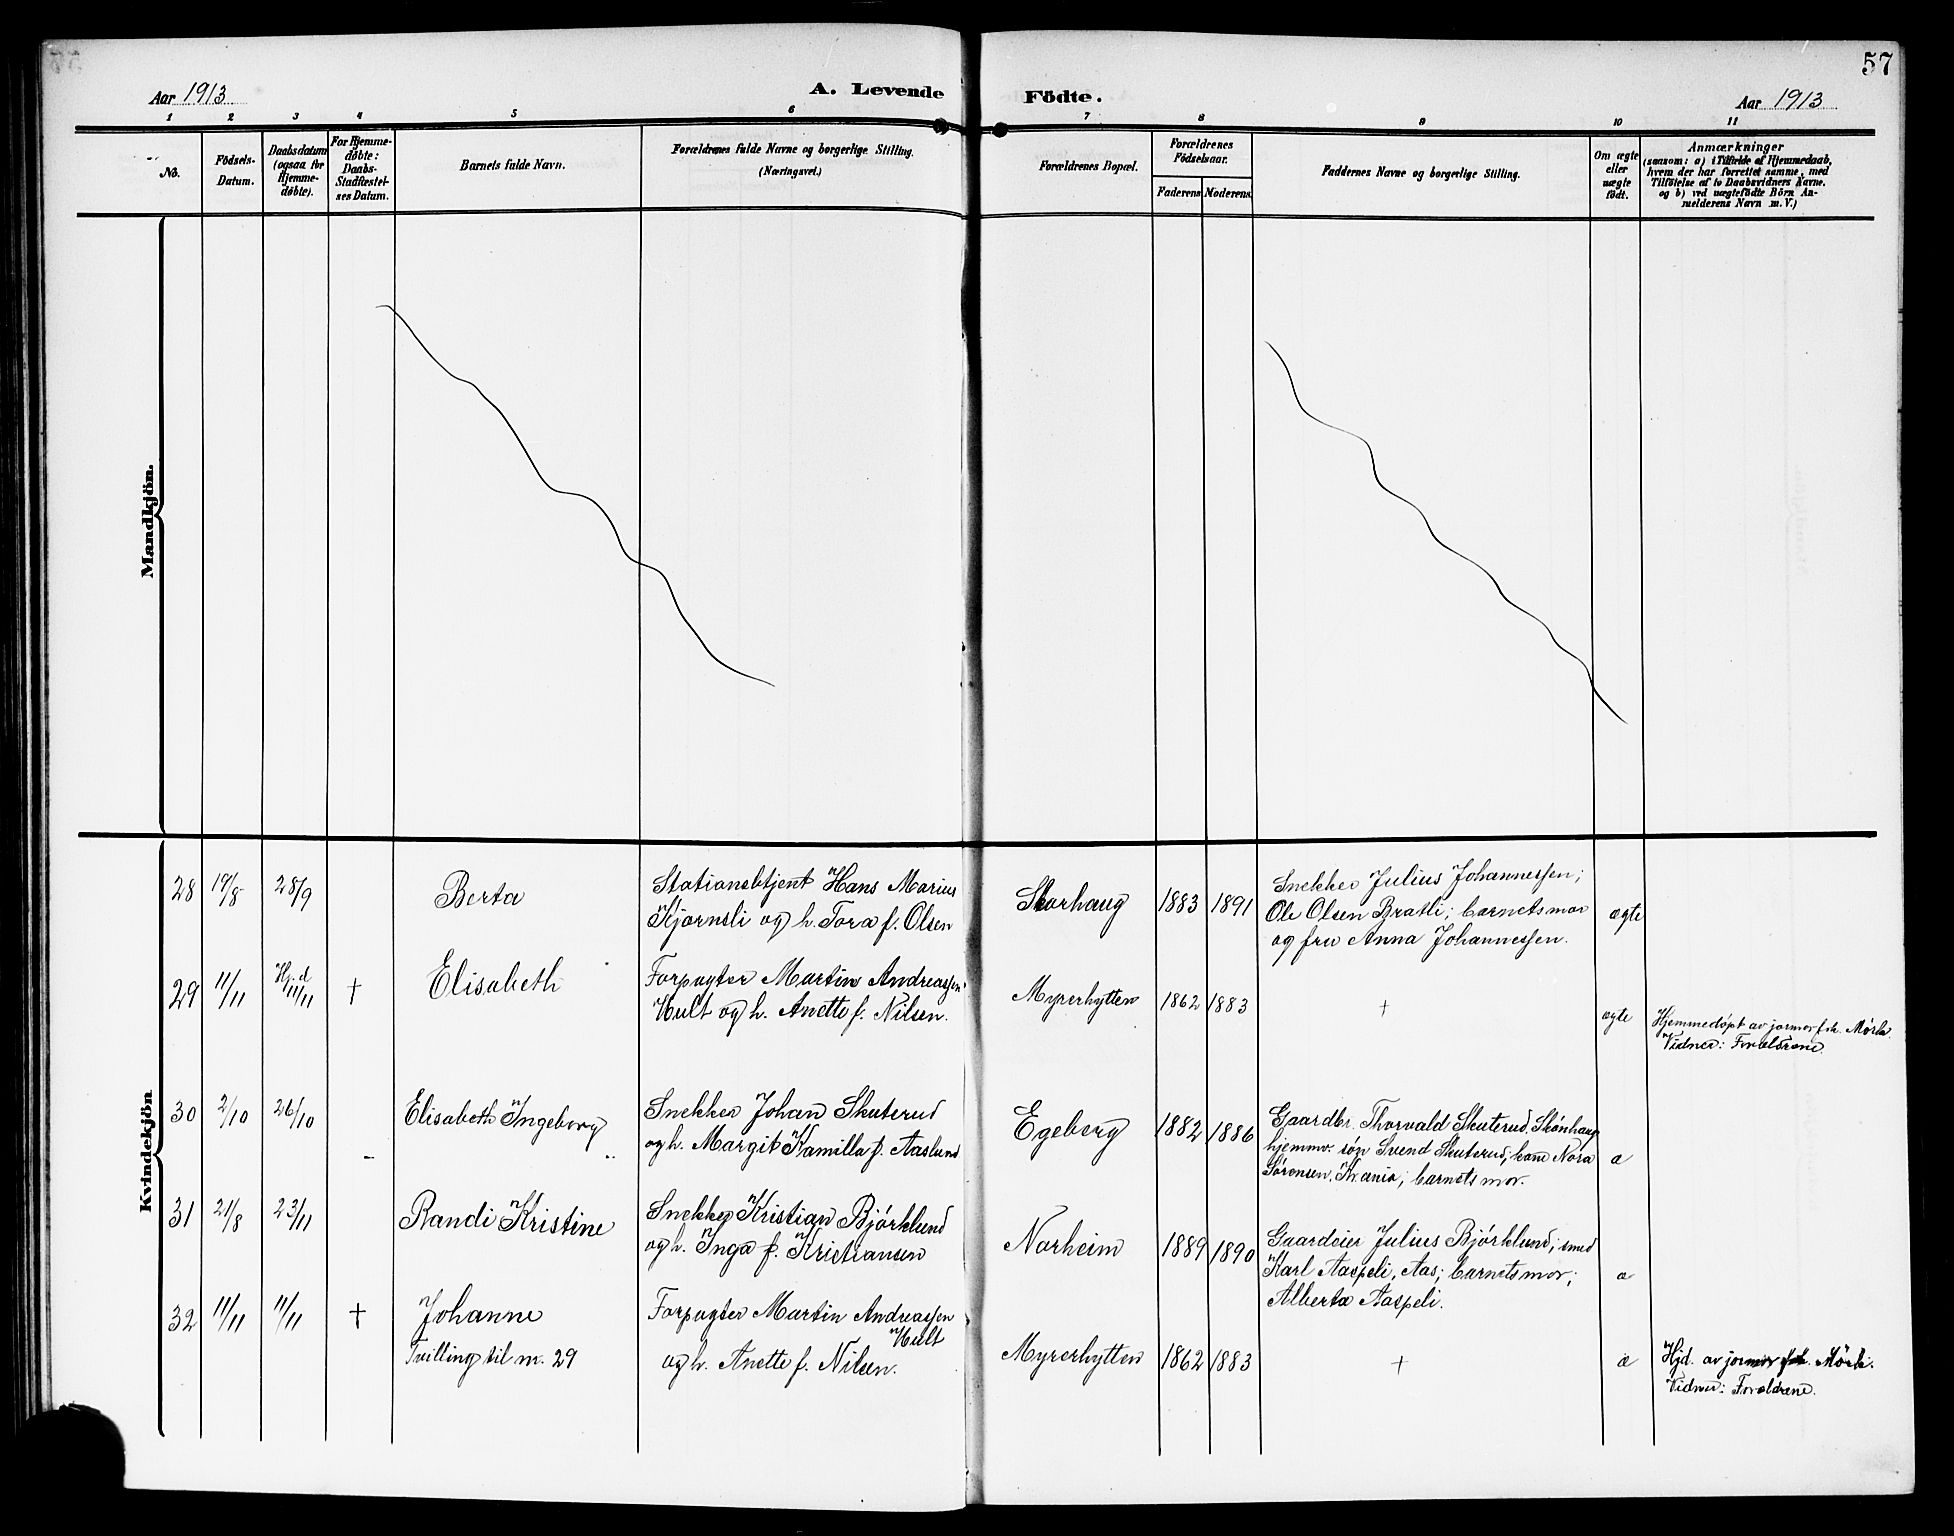 57
Aar 1913
A. Levende
Födte.
Aar 1913
1 2 3 4 5 6 7 8 9 10 11
No.
Födsels-
Datum.
Daabsdatum
(ogsaa for
Hjemme-
döbte).
For Hjemme-
döbte:
Daabs-
Stadfæstel-
ses Datum.
Barnets fulde Navn.
Forældrenes fulde Navne og borgerlige Stilling.
(Næringsvei.)
Forældrenes Bopæl.
Forældrenes
Födselsaar.
Faderens
Moderens
Faddernes Navne og borgerlige Stilling.
Om ægte
eller
uægte
födt.
Anmærkninger
(saasom: a) i Tilfælde af Hjemmedaab,
hvem der har forrettet samme, med
Tilföielse af to Daabsvidners Navne.
og b) ved uægtefödte Börn An-
melderens Navn m. V.)
Mandkjön.
Kvindekjön
28 19/8 28/9
Berta
Stationsbtjent Hans Marius
Kjørnsli og h. Tora f. Olsen
Skorhaug
1883 1891
Snekker Julius Johannessen;
Ole Olsen Bratli; barnets mor
og fru Anna Johannessen.
ægte
29 11/11 Hj.d 11/11 †
Elisabeth
Forpagter Martin Andreassen
Hult og h. Anette f. Nilsen.
Myrerhytten
1862 1883
†
ægte
Hjemmedøpt av jormor frk. Mørk.
Vidner: Forældrene.
30 2/10 26/10
Elisabeth Ingeborg
Snekker Johan Skuterud
og h. Margit Kamilla f. Aaslund
Egeberg
1882 1886
Gaardbr. Thorvald Skuterud, Skønhaug
hjemmv. søn Svend Skuterud; Nora
Sørensen, Kr.ania; barnets mor.
æ
31 21/8 23/11
Randi Kristine
Snekker Kristian Bjørklund
og h. Inga f. Kristiansen
Norheim
1889 1890
Gaardeier Julius Bjørklund; smed
Karl Aaspeli, Aas; barnets mor;
Alberta Aaspeli.
æ
32 11/11 11/11 †
Johanne
Tvilling til nr. 29
Forpagter Martin Andreassen
Hult
og h. Anette f. Nilsen.
Myrerhytten
1862 1883
†
æ
Hjd. av jormor frk. Mørk.
Vidner: Forældrene.